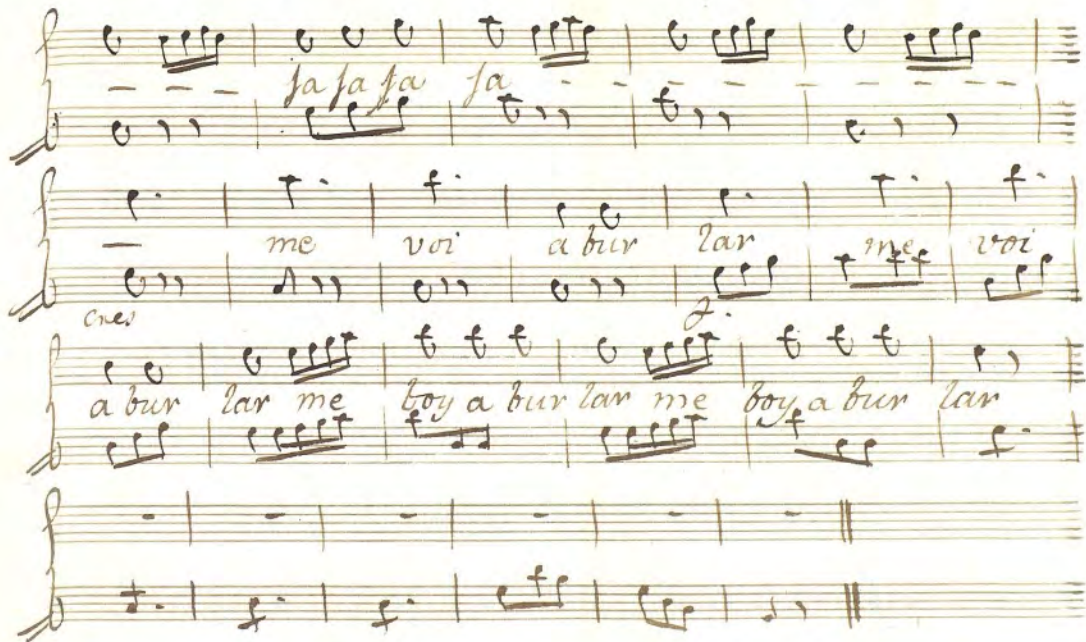 — — — ja ja ja ja - - - - - - - -
— me voi a bur lar me voi
cres f.
a bur lar me boy a bur lar me boy a bur lar